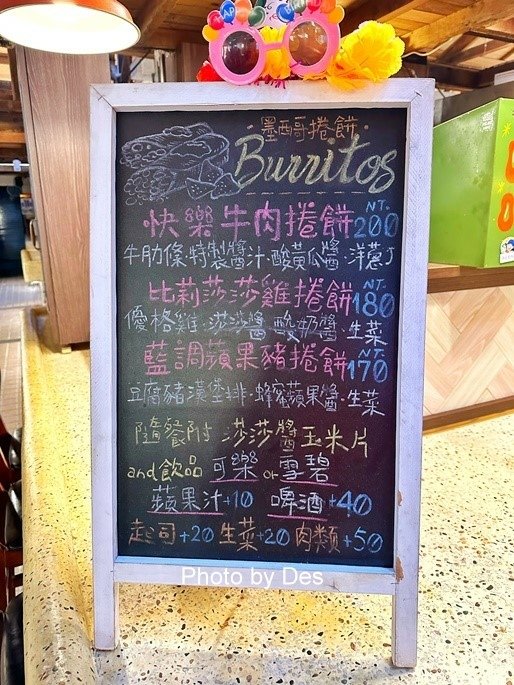 墨西哥捲餅
Burritos
快樂牛肉捲餅 NT. 200
牛肋條·特製醬汁·酸黃瓜醬·洋蔥丁
比莉莎莎雞捲餅 NT. 180
優格雞·莎莎醬·酸奶醬·生菜
藍調蘋果豬捲餅 NT. 170
豆腐豬漢堡排·蜂蜜蘋果醬·生菜
隨餐附 莎莎醬玉米片
and飲品 可樂 or 雪碧
蘋果汁+10 啤酒+40
起司+20 生菜+20 肉類+50
Photo by Des